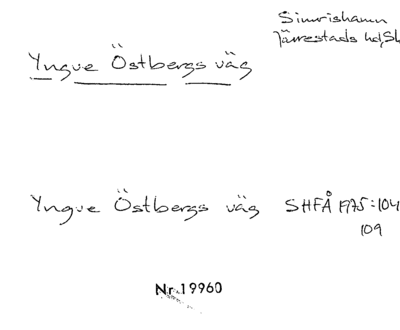 Simrishamn
Järrestads hd, Sk
Yngve Östbergs väg
Yngve Östbergs väg SHFÅ 1975:104
109
Nr 19960